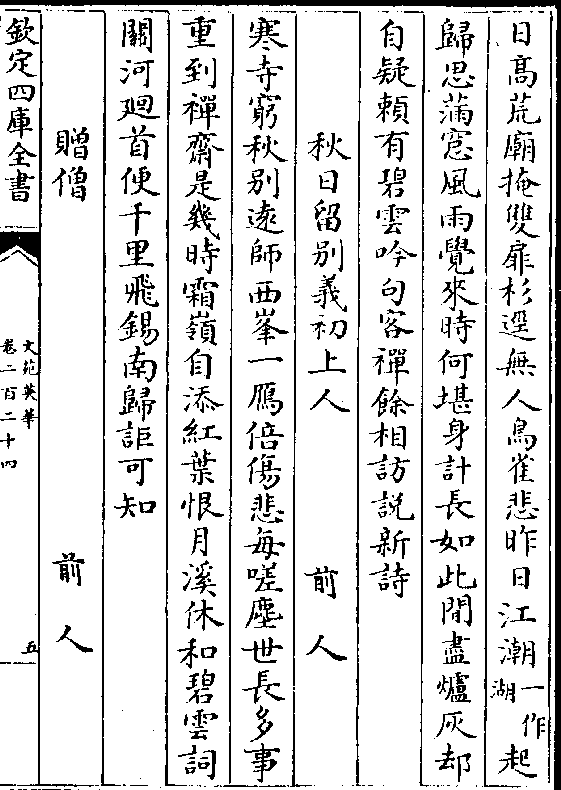 日高荒廟掩雙扉杉逕無人鳥雀悲昨日江潮一作湖起
歸思滿窓風雨覺來時何堪身計長如此閒盡爐灰却
自疑頼有碧雲吟句客禪餘相訪説新詩
秋日留別義初上人 前人
寒寺窮秋別逺師西峯一鴈倍傷悲每嗟塵世長多事
重到禪齋是幾時霜嶺自添紅葉恨月溪休和碧雲詞
關河廻首便千里飛錫南歸詎可知
贈僧 前人
欽定四庫全書
文苑英華
卷二百二十四
五